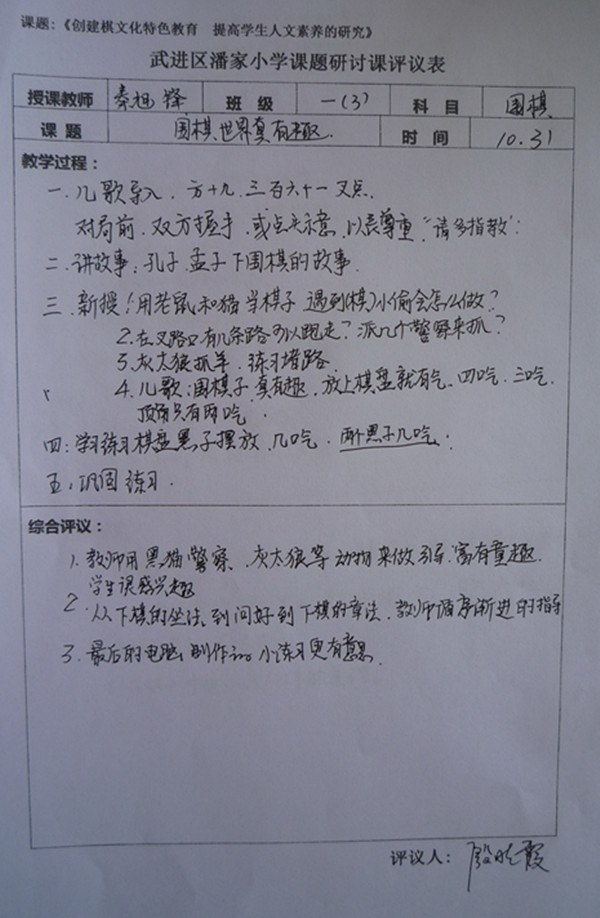 课题：《创建棋文化特色教育　提高学生人文素养的研究》
武进区潘家小学课题研讨课评议表
授课教师 秦旭锋 班级 一(3) 科目 围棋
课题 围棋世界真有趣. 时间 10.31
教学过程：
一. 儿歌导入. 方十九. 三百六十一叉点.
对局前. 双方握手. 或点头示意. 以表尊重. "请多指教".
二. 讲故事: 孔子. 孟子下围棋的故事.
三. 新授: 1. 用老鼠和猫当棋子 遇到(棋)小偷会怎么做?
2. 在叉路口有几条路可以跑走? 派几个警察来抓?
3. 灰太狼抓羊. 练习堵路.
4. 儿歌: 围棋子真有趣. 放上棋盘就有气. 四吃. 三吃.
顶角只有两吃.
四: 学习练习棋盘黑子摆放. 几吃. 两个黑子几吃.
五: 巩固练习.
综合评议：
1. 教师用黑猫警察、灰太狼等动物来做引导. 富有童趣.
学生很感兴趣
2. 从下棋的坐法. 到问好到下棋的章法. 教师循序渐进的指导
3. 最后的电脑制作 小练习更有意思.
评议人： 殷晓霞